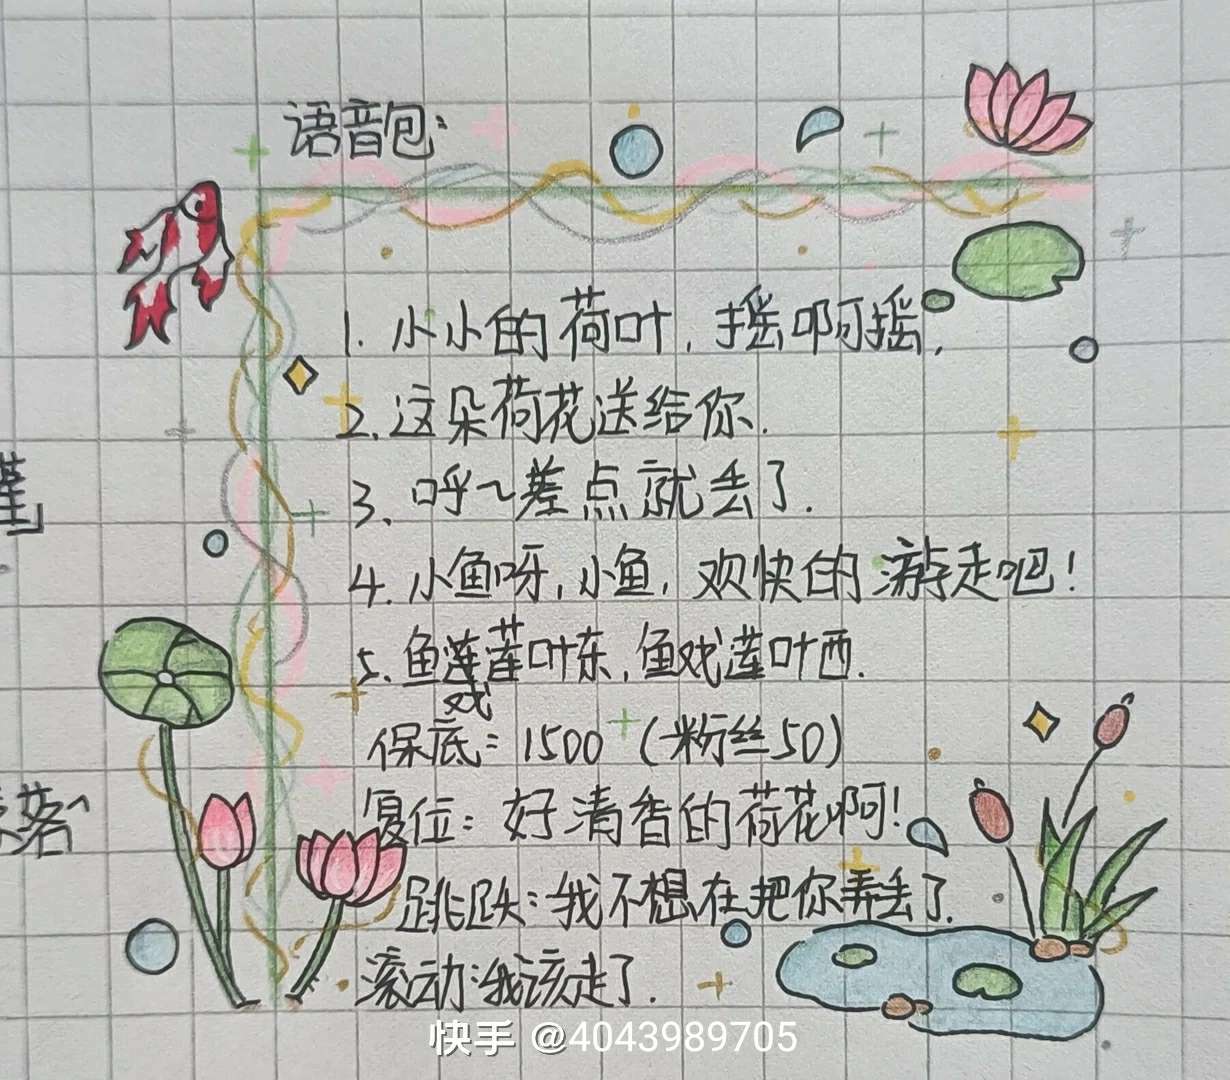 语音包:
1. 小小的荷叶, 摇啊摇.
2. 这朵荷花送给你.
3. 呼~差点就丢了.
4. 小鱼呀, 小鱼, 欢快的游走吧!
5. 鱼莲莲叶东, 鱼戏莲叶西.
戏
保底: 1500 (粉丝50)
复位: 好清香的荷花啊!
落^
跳跃: 我不想在把你弄丢了.
滚动: 我该走了.
快手 @4043989705